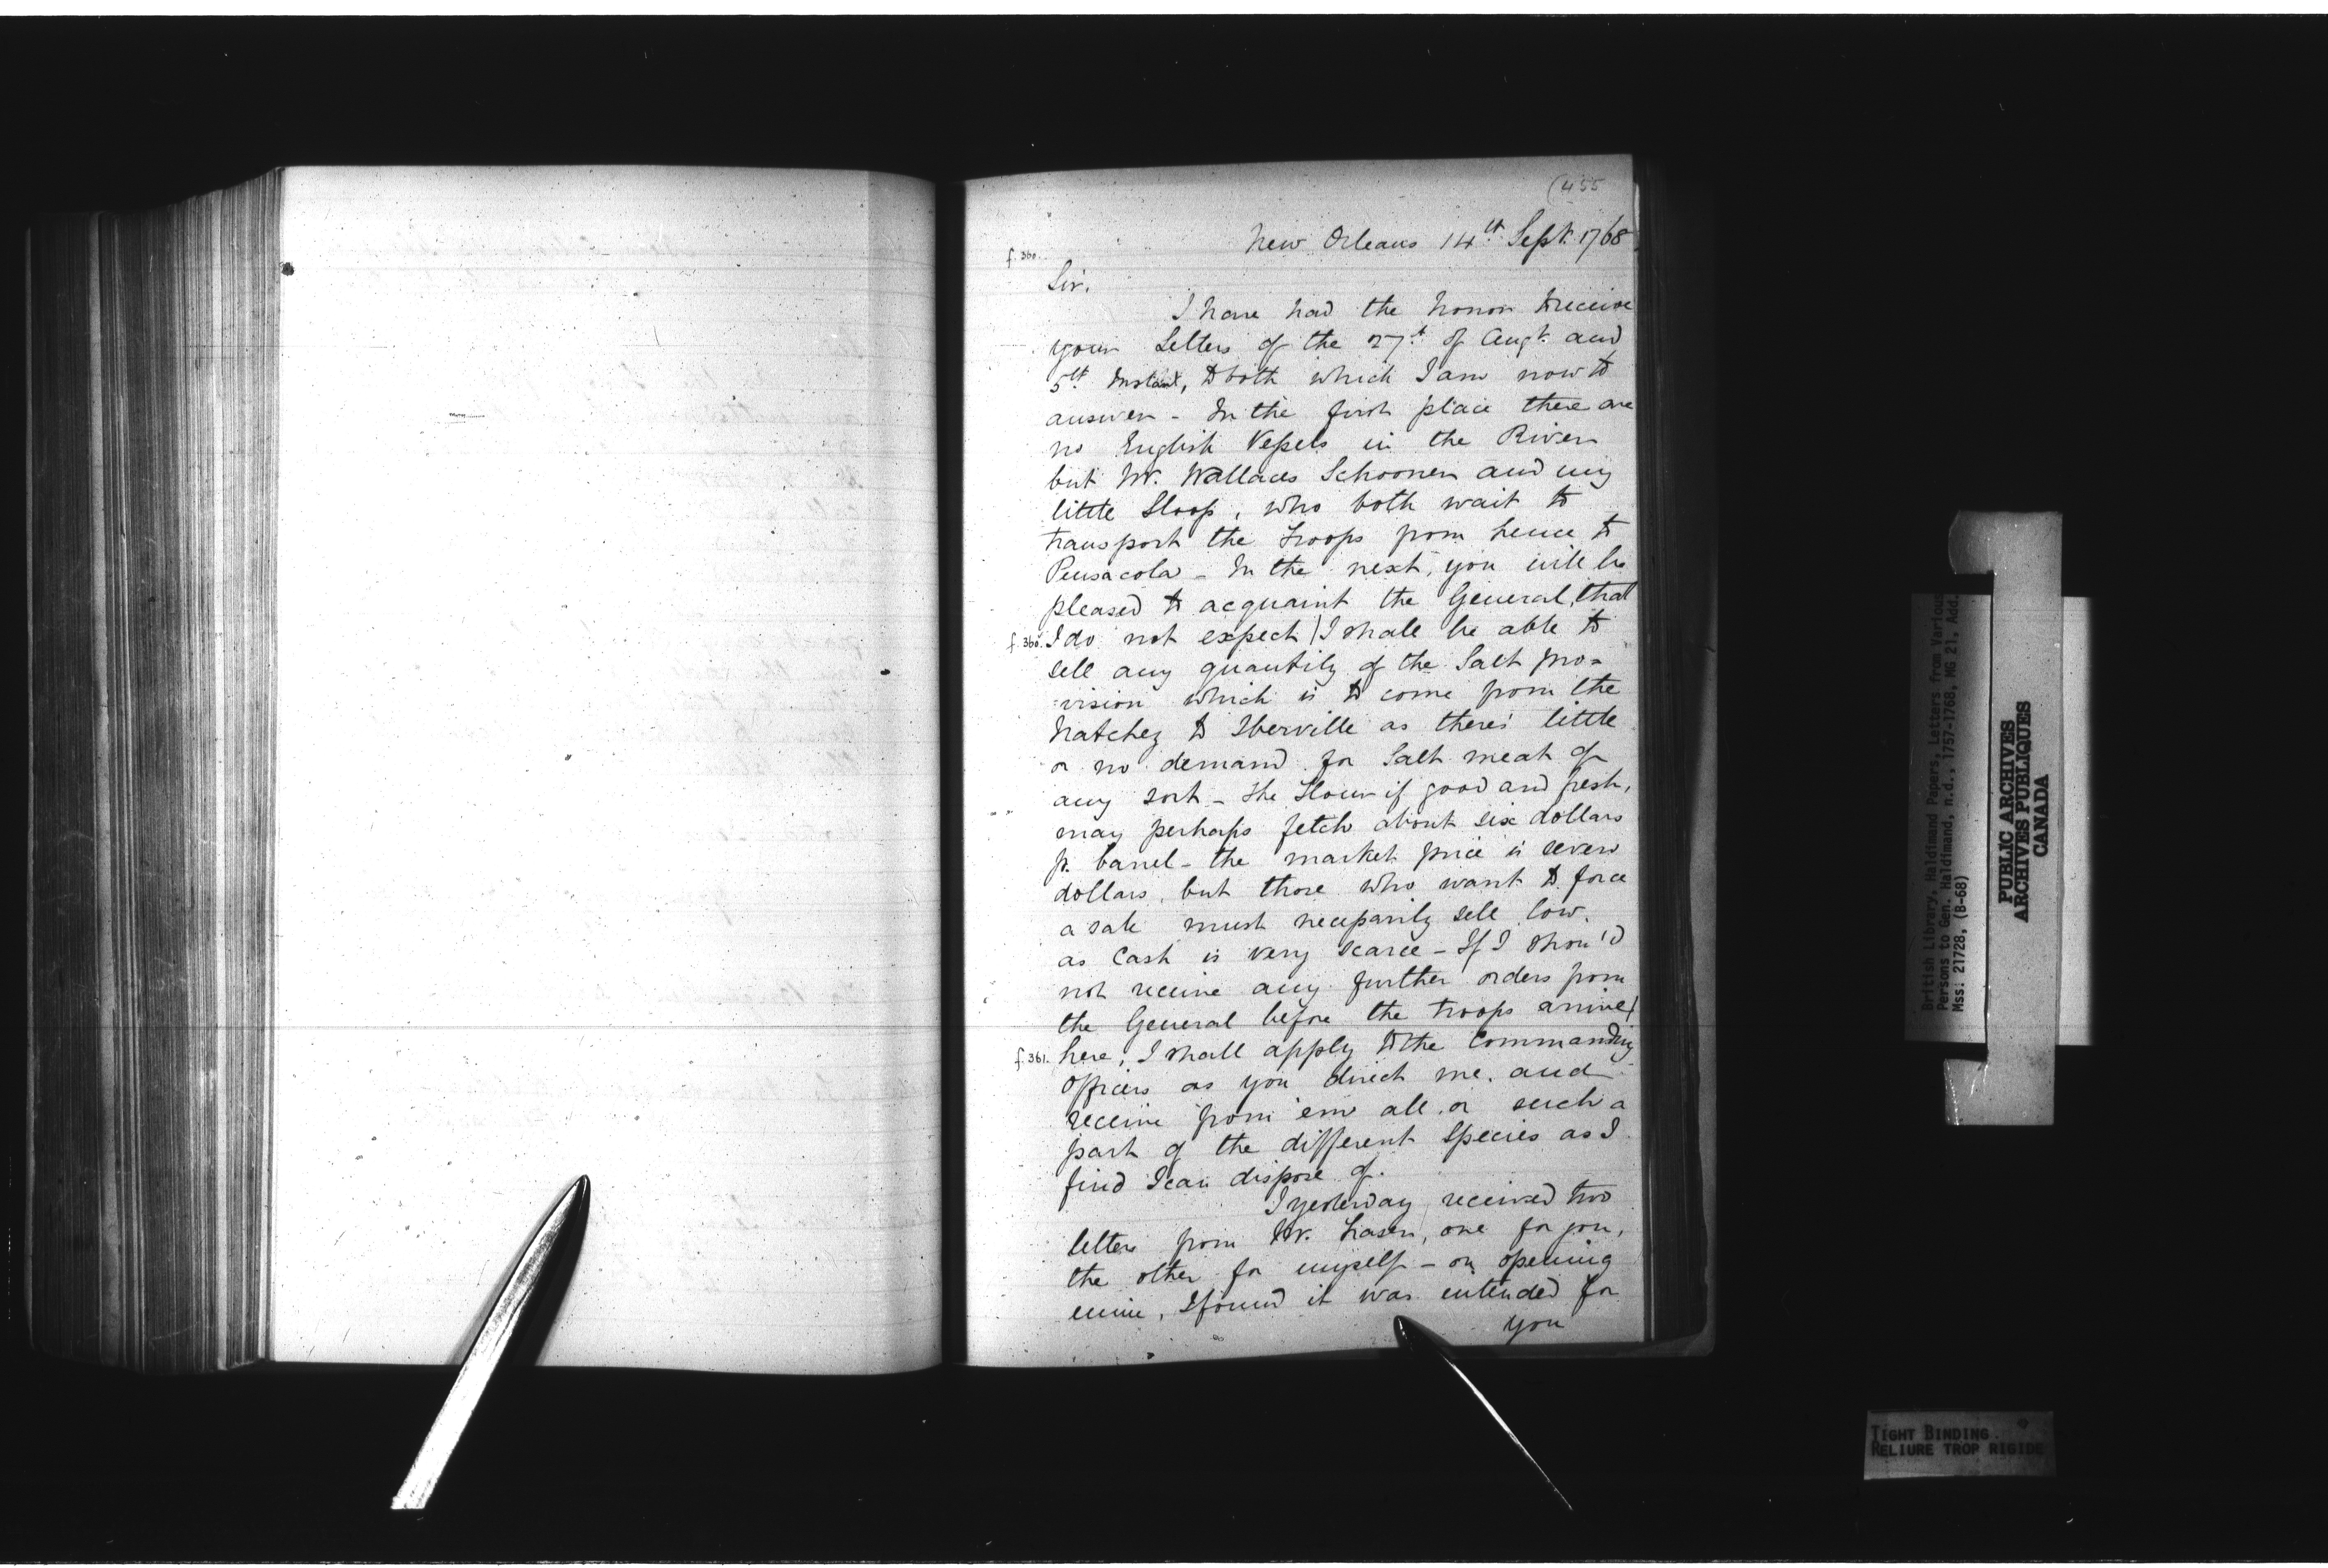 (455
New Orleans 14th Sept. 1768
f. 360.
Sir.
I have had the honor to receive
your Letters of the 27th of Augt. and
5th Instant, to both which I am now to
answer - In the first place there are
no English Vessels in the River
but Mr. Wallaces Schooner and my
little Sloop, who both wait to
transport the troops from hence to
Pensacola - In the next, you will be
pleased to acquaint the General, that
f. 360. I do not expect / I shall be able to
sell any quantity of the Salt pro=
=vision which is to come from the
Natchez to Iberville as there's little
or no demand for Salt meat of
any sort - the Flour if good and fresh,
may perhaps fetch about six dollars
p. barrel - the market price is seven
dollars, but those who want to force
a sale must necessarily sell low,
as Cash is very scarce - If I shou'd
not receive any further orders from
the General before the troops arrive /
f. 361. here, I shall apply to the Commanding
Officers as you direct me, and
receive from 'em all or such a
part of the different Species as I
find I can dispose of.
I yesterday received two
letters from Mr. Fraser, one for you,
the other for myself - on opening
mine, I found it was intended for
you
British Library, Haldimand Papers, Letters from Various
Persons to Gen. Haldimand, n.d., 1757-1768, MG 21, Add.
Mss: 21728, (B-68)
PUBLIC ARCHIVES
ARCHIVES PUBLIQUES
CANADA
TIGHT BINDING.
RELIURE TROP RIGIDE